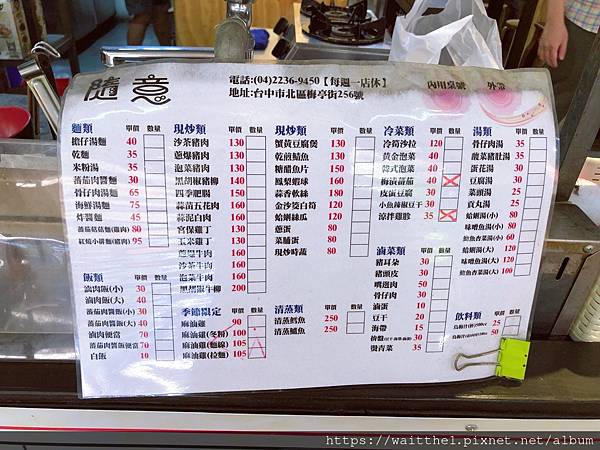 隨意
電話:(04)2236-9450【每週一店休】
地址:台中市北區梅亭街256號
內用桌號
外帶
麵類 單價 數量
擔仔湯麵 40
乾麵 35
米粉湯 35
蕃茄肉醬麵 30
骨仔肉湯麵 65
海鮮湯麵 75
炸醬麵 45
蕃茄菇菇麵(雞肉) 80
紅燒小排麵(豬肉) 95
飯類 單價 數量
滷肉飯(小) 30
滷肉飯(大) 40
蕃茄肉醬飯(小) 30
蕃茄肉醬飯(大) 40
滷肉便當 70
蕃茄肉醬飯便當 70
白飯 10
現炒類 單價 數量
沙茶豬肉 130
蔥爆豬肉 130
泡菜豬肉 130
黑胡椒豬柳 140
四季肥腸 150
蒜苗五花肉 160
蒜泥白肉 160
宮保雞丁 130
玉米雞丁 130
蔥爆牛肉 160
沙茶牛肉 160
泡菜牛肉 160
黑胡椒牛柳 200
季節限定 單價 數量
麻油雞 90
麻油雞(冬粉) 100
麻油雞(麵線) 105
麻油雞(拉麵) 105
現炒類 單價 數量
蟹黃豆腐煲 130
乾煎鯖魚 130
糖醋魚片 150
鳳梨蝦球 160
蒜香軟絲 160
金沙筊白筍 120
蛤蜊絲瓜 120
蔥蛋 80
菜脯蛋 80
現炒時蔬 80
清蒸類 單價 數量
清蒸鱈魚 250
清蒸鱸魚 250
冷菜類 單價 數量
冷筍沙拉 120
黃金泡菜 40
韓式泡菜 40
梅漬蕃茄 40
皮蛋豆腐 30
小魚辣椒豆干 40
涼拌雞胗 35
滷菜類 單價 數量
豬耳朵 30
豬頭皮 30
嘴邊肉 30
骨仔肉 30
滷蛋 10
豆干 20
海帶 15
燙青菜 35
湯類 單價 數量
骨仔肉湯 35
酸菜豬肚湯 35
蛋花湯 30
豆腐湯 30
菜頭湯 25
貢丸湯 30
蛤蜊湯(小) 80
味噌魚湯(小) 80
鮮魚杏菜湯(小) 60
蛤蜊湯(大) 120
味噌魚湯(大) 120
鮮魚杏菜湯(大) 100
飲料類 單價 數量
50
25
https://waitthel.pixnet.net/album